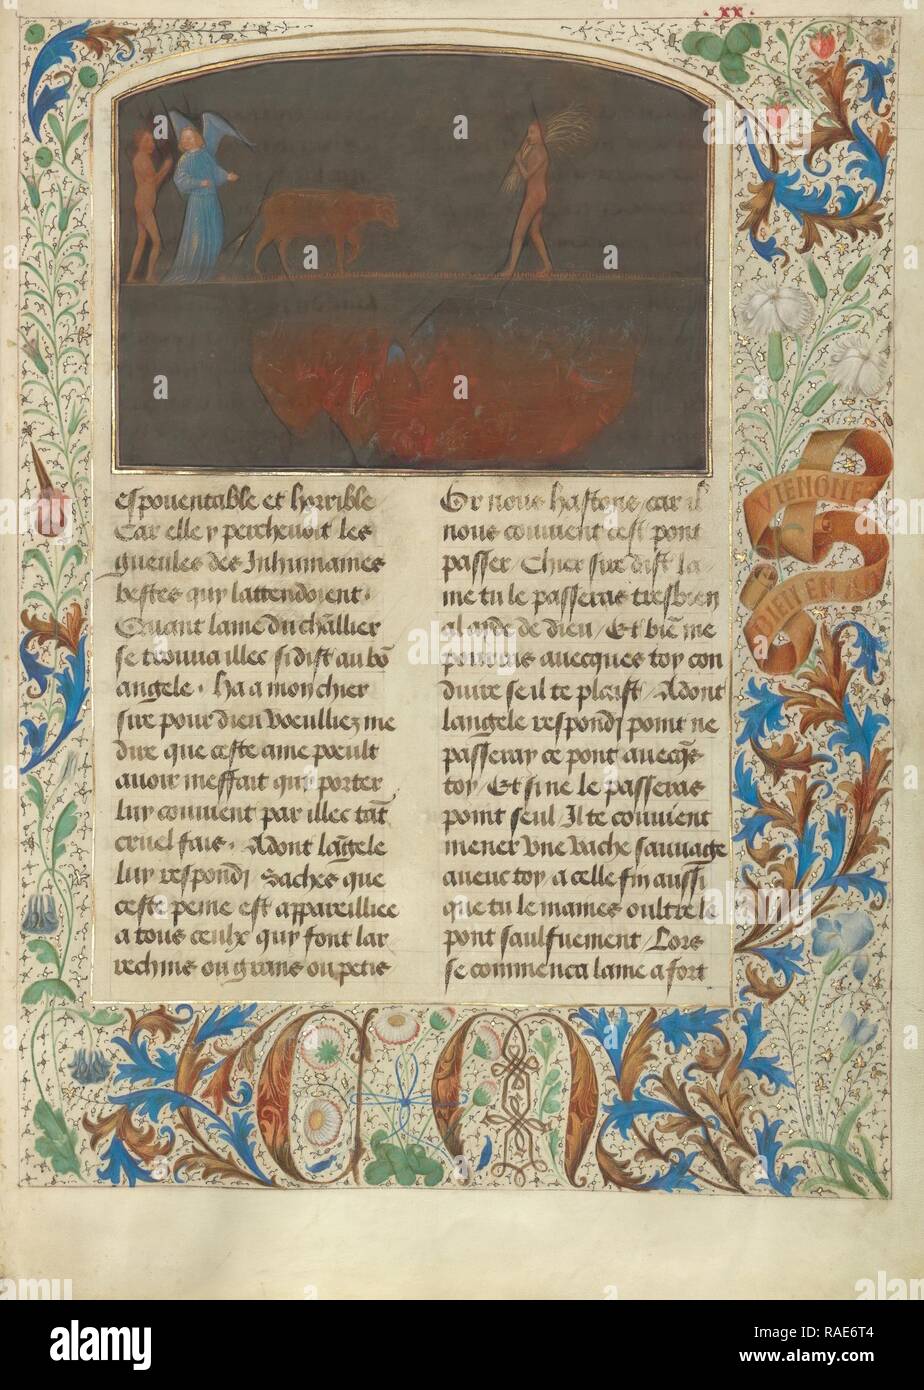 . xx .
espouentable et horrible
Car elle y percheuoit les
gueules des Inhumaines
bestes quy lattendoient .
Quant lame du chlīer
se trouua illec si dist au bō
angele . ha a mon chier
sire pour dieu voeulliez me
dire que ceste ame poeult
auoir meffait quy porter
luy conuient par illec tāt
cruel fais . Adont lāgele
luy respondi Saches que
ceste peine est appareilliee
a tous ceulx quy font lar
rechins ou grans ou petis
Or nous hastons car il
nous conuient cest pont
passer / Chier sire dist la
me tu le passeras tresbien
a laide de dieu / Et biē me
pourras auecques toy con
duire se il te plaist / Adont
langele respondi point ne
passeray ce pont auecq̄s
toy / Et si ne le passeras
point seul / Il te conuient
mener vne vache sauuage
auec toy a celle fin aussi
que tu le maines oultre le
pont saulfuement / Lors
se commenca lame a fort
VIENGNE
BIEN EN A
C M
alamy
a
RAE6T4
www.alamy.com